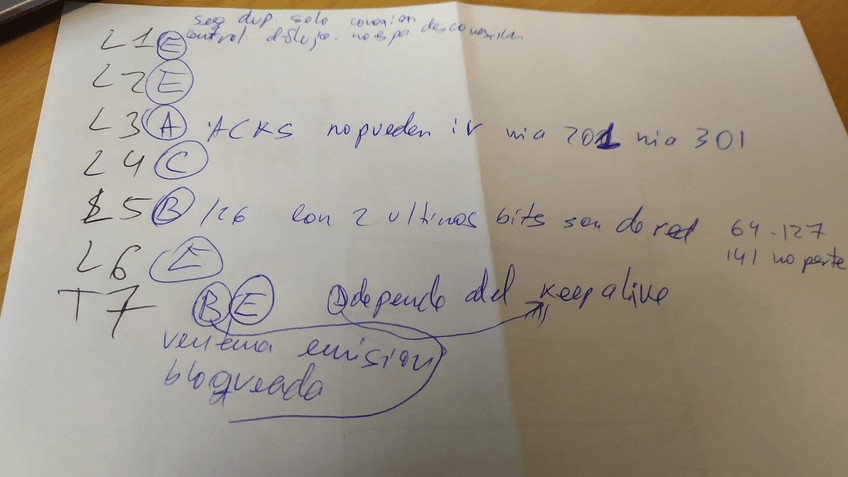 seg dup solo conexion
L1 E control d flujo. no es pa desconexion
L2 E
L3 A ACKS no pueden ir ni a 201 ni a 301
L4 C
L5 B /26 con 2 ultimos bits son de red 64-127
141 no parte
L6 E
T7 B E D depende del keep alive
ventana emision
bloqueada